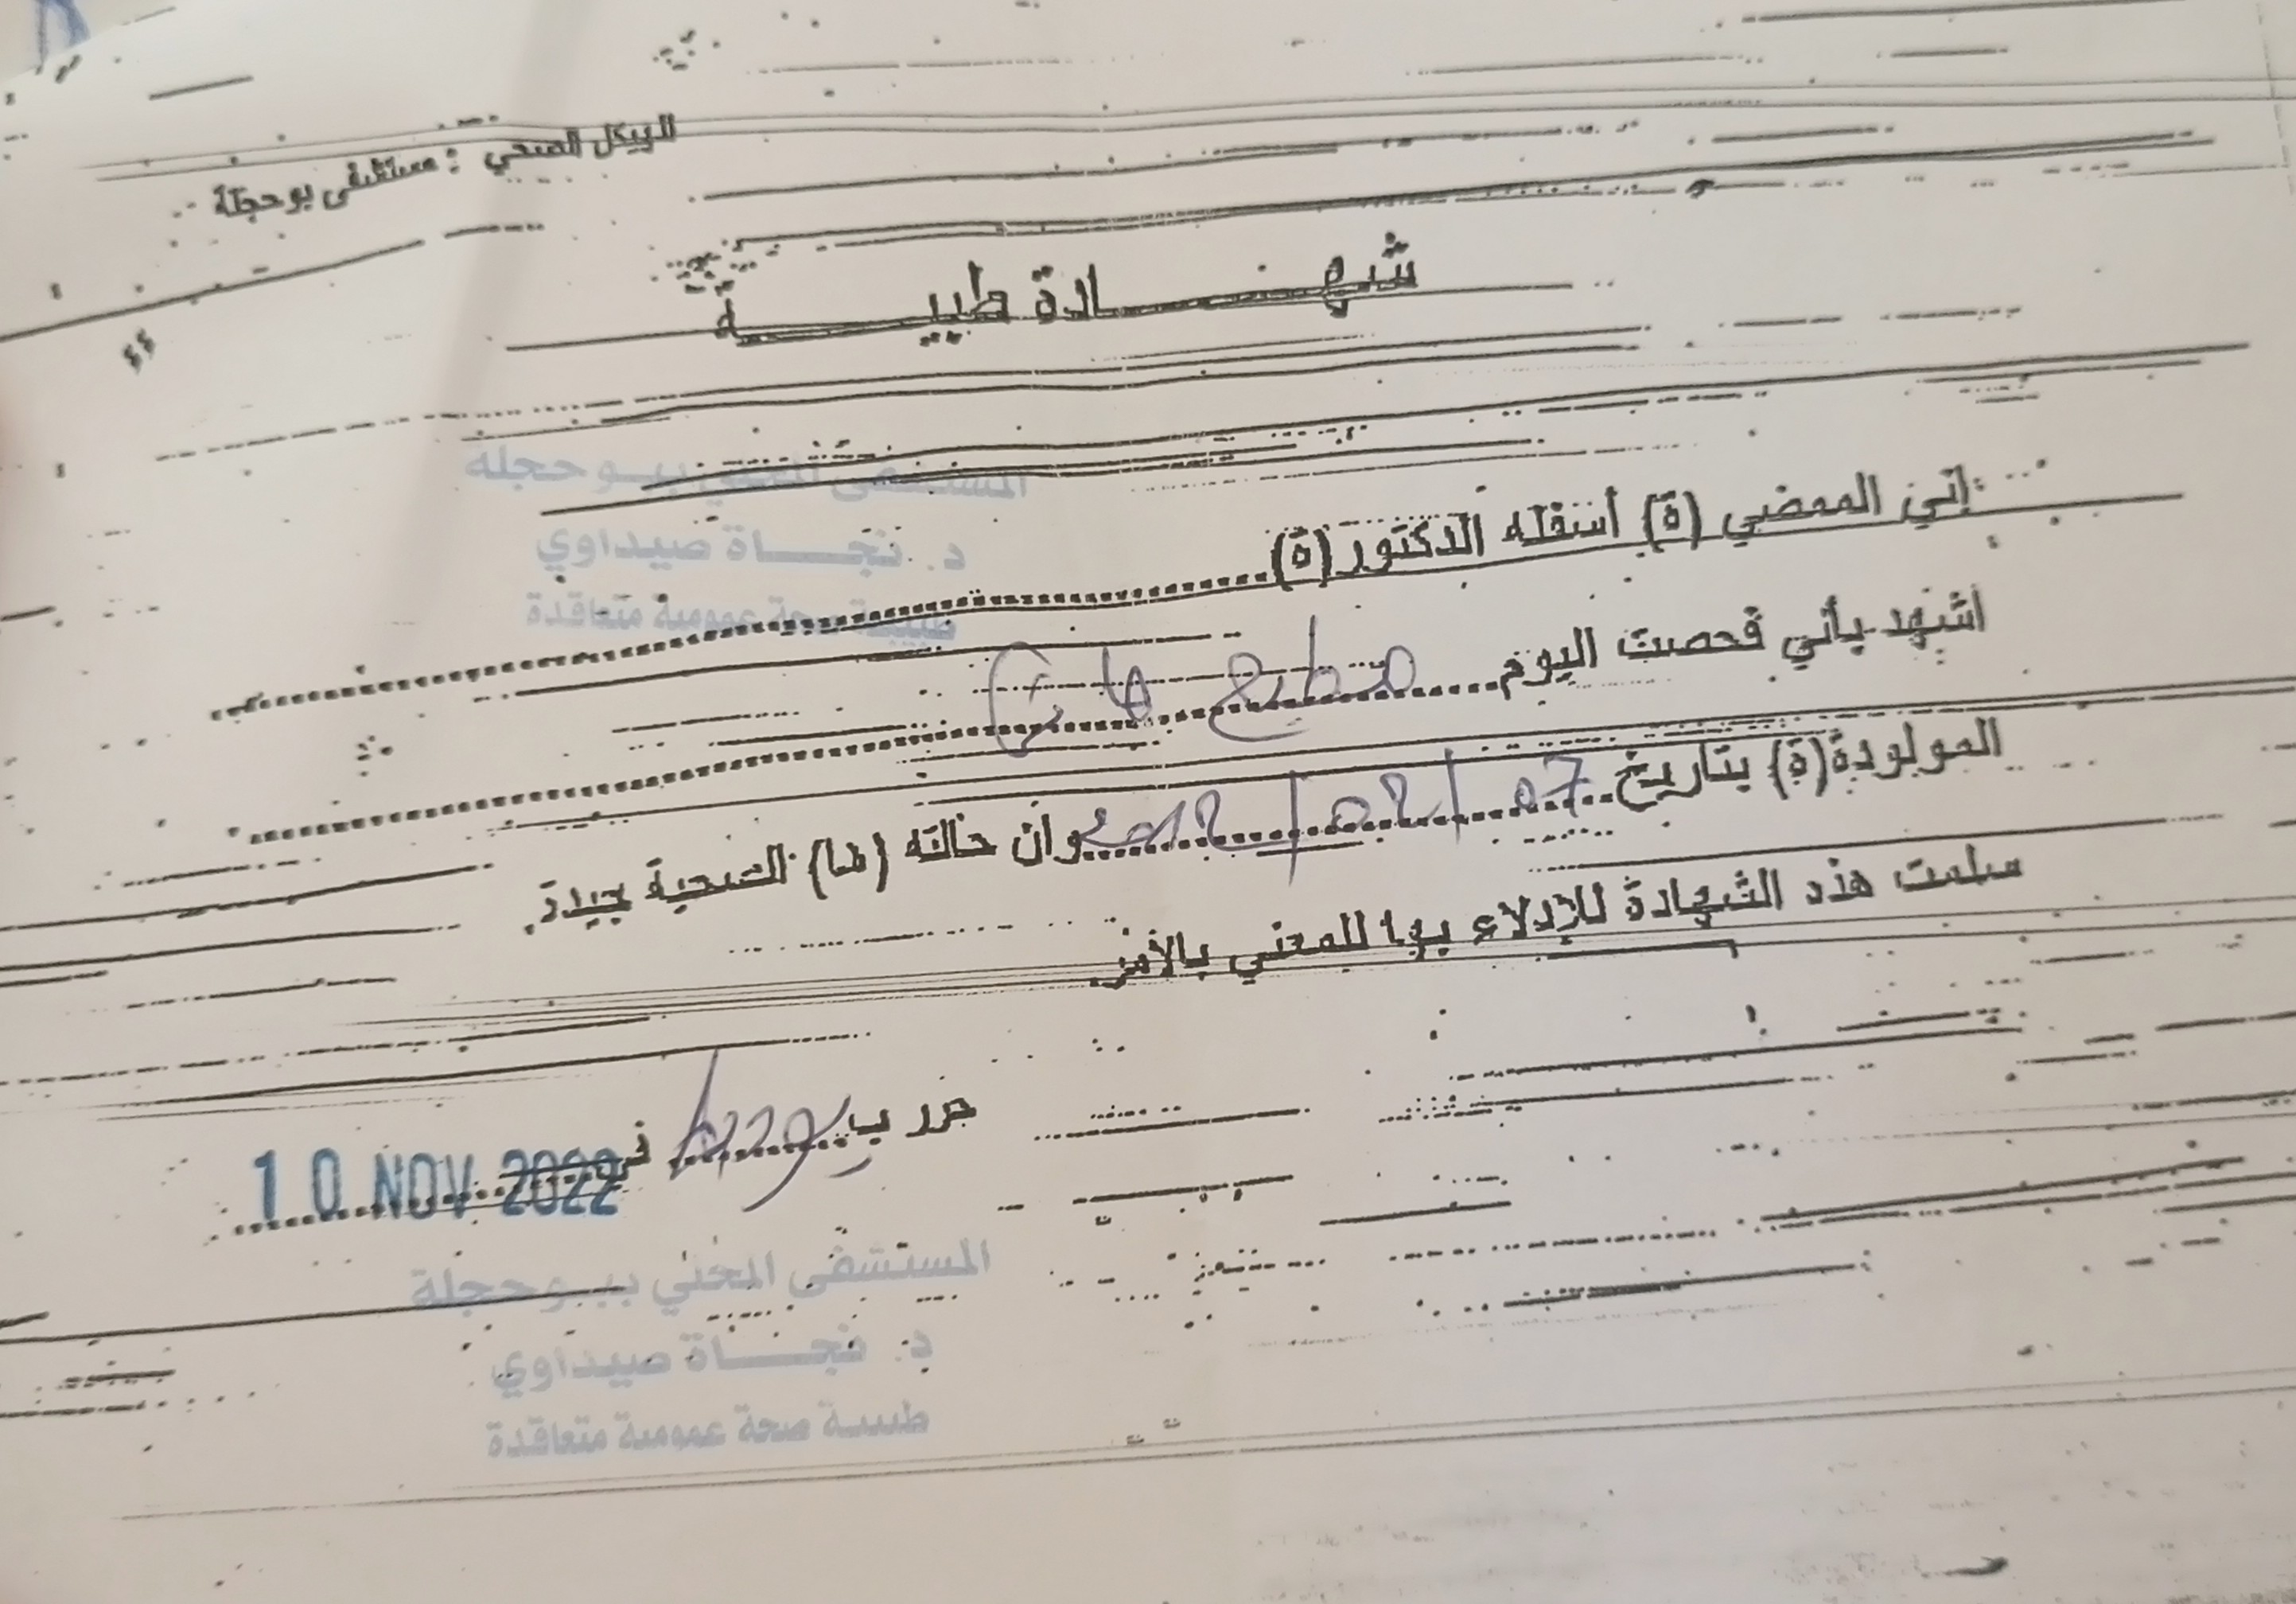 الهيكل الصحي : مستشفى بوحجلة
شهادة طبية
المستشفى المحلي ببوحجلة
د. نجاة صيداوي
طبيبة صحة عمومية متعاقدة
إني الممضي (ة) أسفله الدكتور(ة)
أشهد بأني فحصت اليوم
المولودة(ة) بتاريخ 07 وأن حالته (ها) الصحية جيدة.
سلمت هذه الشهادة للإدلاء بها للمعني بالأمر.
حرر ب في 10 NOV 2022
المستشفى المحلي ببوحجلة
د. نجاة صيداوي
طبيبة صحة عمومية متعاقدة